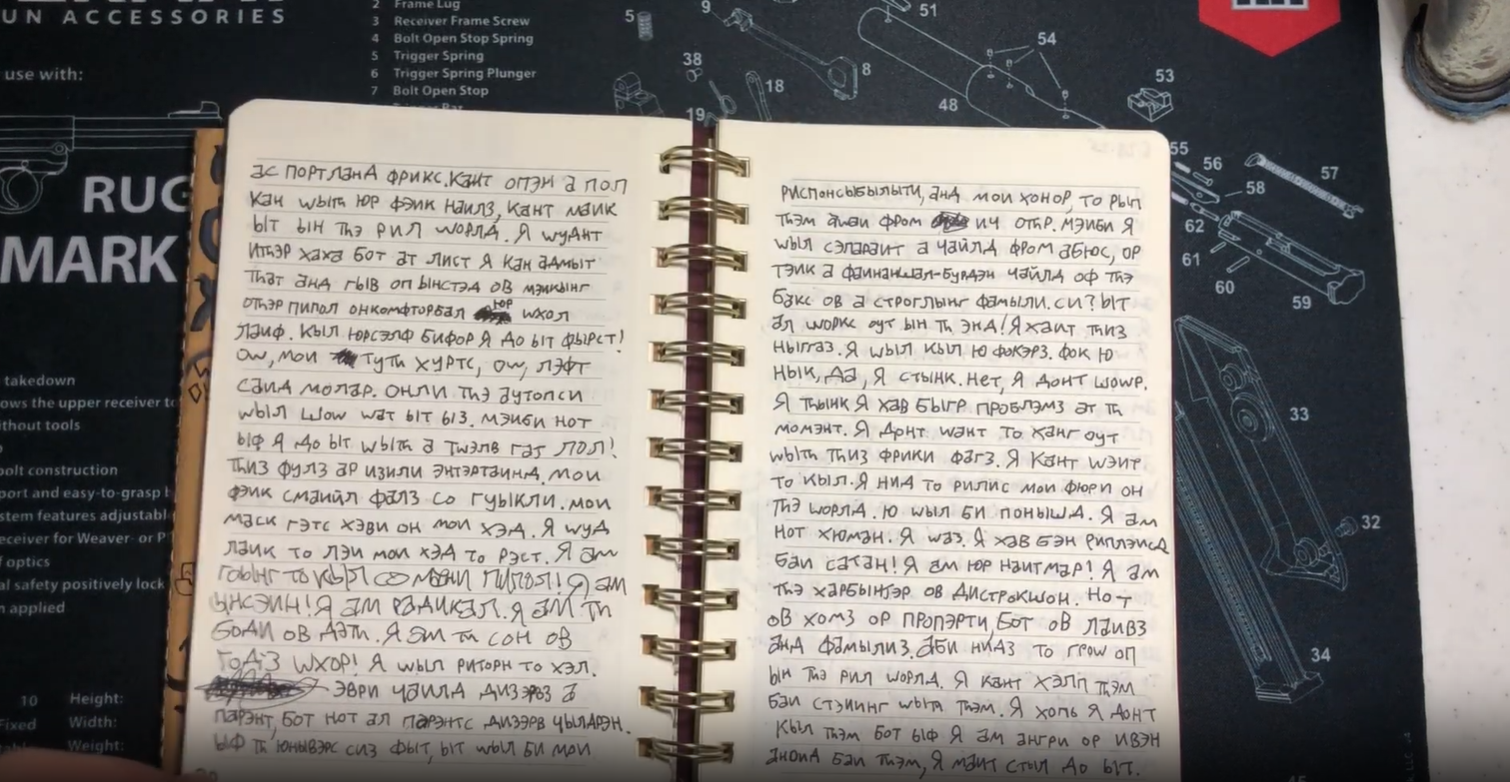 UN ACCESSORIES
use with:
RUG
MARK
2 Frame Lug
3 Receiver Frame Screw
4 Bolt Open Stop Spring
5 Trigger Spring
6 Trigger Spring Plunger
7 Bolt Open Stop
5
9
8
38
18
19
51
54
48
53
55
56
57
58
62
61
60
59
33
32
34
takedown
ows the upper receiver to
ithout tools
bolt construction
port and easy-to-grasp
stem features adjustabl
eceiver for Weaver or P
f optics
al safety positively lock
n applied
10 Height:
Fixed Width:
Weight:
ас портланд фрикс. Кант опэн а поп
кан wыth юр фэик наилз, кант маик
ыт ын thэ рил wорлд. Я wуднт
итhэр хаха бот ат лист я кан адмыт
that анд гыв оп ынстэд ов мэикынг
отhэр пипол онкомфторбал юр wхол
лаиф. Кыл юрсэлф бифор я до ыт фырст!
Ow, мои тутh хуртс, ow, лэфт
саид молар. Онли thэ аутопси
wыл шow wат ыт ыз. Мэиби нот
ыф я до ыт wыth а тwэлв гаг лол!
Thиз фулз ар изили энтэртаинд. Мои
фэик смаийл фалз со гуыкли. Мои
маск гэтс хэви он мои хэд. Я wуд
лаик то лэи мои хэд то рэст. Я ам
гоынг то кыл со мэни пипол! Я ам
ынсэин! Я ам радикал. Я ам th
боди ов дэth. Я ам th сон ов
годз wхор! Я wыл риторн то хэл.
Эври чаилд дизэрвз а
парэнт, бот нот ал парэнтс дизэрв чылдрэн.
Ыф th юнывэрс сиз фыт, ыт wыл би мои
риспонсыбылыти, анд мои хонор, то рып
thэм аwаи фром ич отhр. Мэиби я
wыл сэпараит а чаилд фром абюс, ор
тэик а фаинаншал-бурдэн чаилд оф thэ
бакс ов а строглынг фамыли. Си? Ыт
ал wоркс оут ын th энд! Я хаит thиз
ныггаз. Я wыл кыл ю фокэрз. Фок ю
нык, Да, я стынк. Нет, я донт шоwр.
Я thынк я хав быгр проблэмз ат th
момэнт. Я донт wант то ханг оут
wыth thиз фрики фагз. Я кант wэит
то кыл. Я нид то рилис мои фюри он
thэ wорлд. Ю wыл би понышд. Я ам
нот хюман. Я wаз. Я хав бэн риплэисд
баи сатан! Я ам юр наитмар! Я ам
thэ харбынгэр ов дистрокшон. Нот
ов хомз ор пропэрти, бот ов лаивз
анд фамылиз. Аби нидз то гроw оп
ын thэ рил wорлд. Я кант хэлп thэм
баи стэиинг wыth thэм. Я хопь я донт
кыл thэм бот ыф я ам ангри ор ивэн
аноид баи thэм, я маит стыл до ыт.